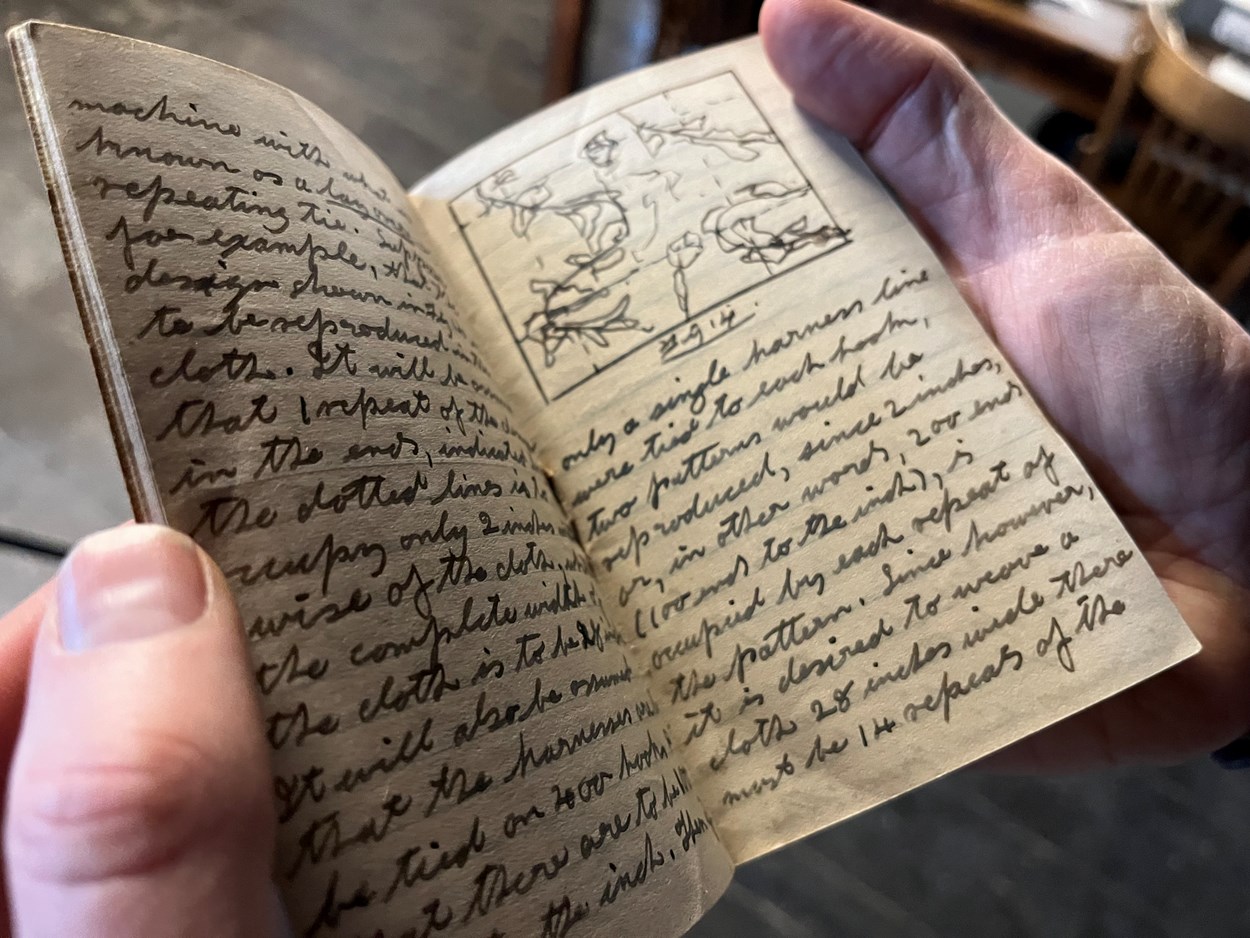 machine with what
known as a layover
repeating tie. Suppose
for example, that
design shown in
to be reproduced in
cloth. It will be
that 1 repeat of the
in the ends, indicated
the dotted lines in
occupy only 2 inches
wise of the cloth,
the complete width
the cloth is to be 28
It will also be assumed
that the harnesses
be tied on 200 hooks
that there are to be
the inch. Then
only a single harness line
were tied to each hook,
two patterns would be
reproduced, since 2 inches,
or, in other words, 200 ends
(100 ends to the inch), is
occupied by each repeat of
the pattern. Since however,
it is desired to weave a
cloth 28 inches wide there
must be 14 repeats of the